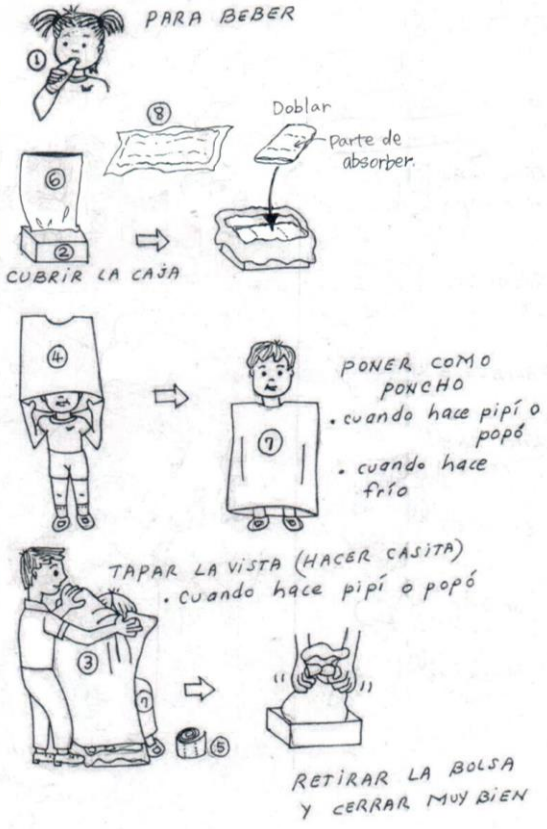 PARA BEBER
①
⑧
Doblar
Parte de
absorber.
⑥
②
CUBRIR LA CAJA
④
PONER COMO
PONCHO
• cuando hace pipí o
popó
⑦
• cuando hace
frío
TAPAR LA VISTA (HACER CASITA)
• cuando hace pipí o popó
③
⑦
⑤
RETIRAR LA BOLSA
Y CERRAR MUY BIEN